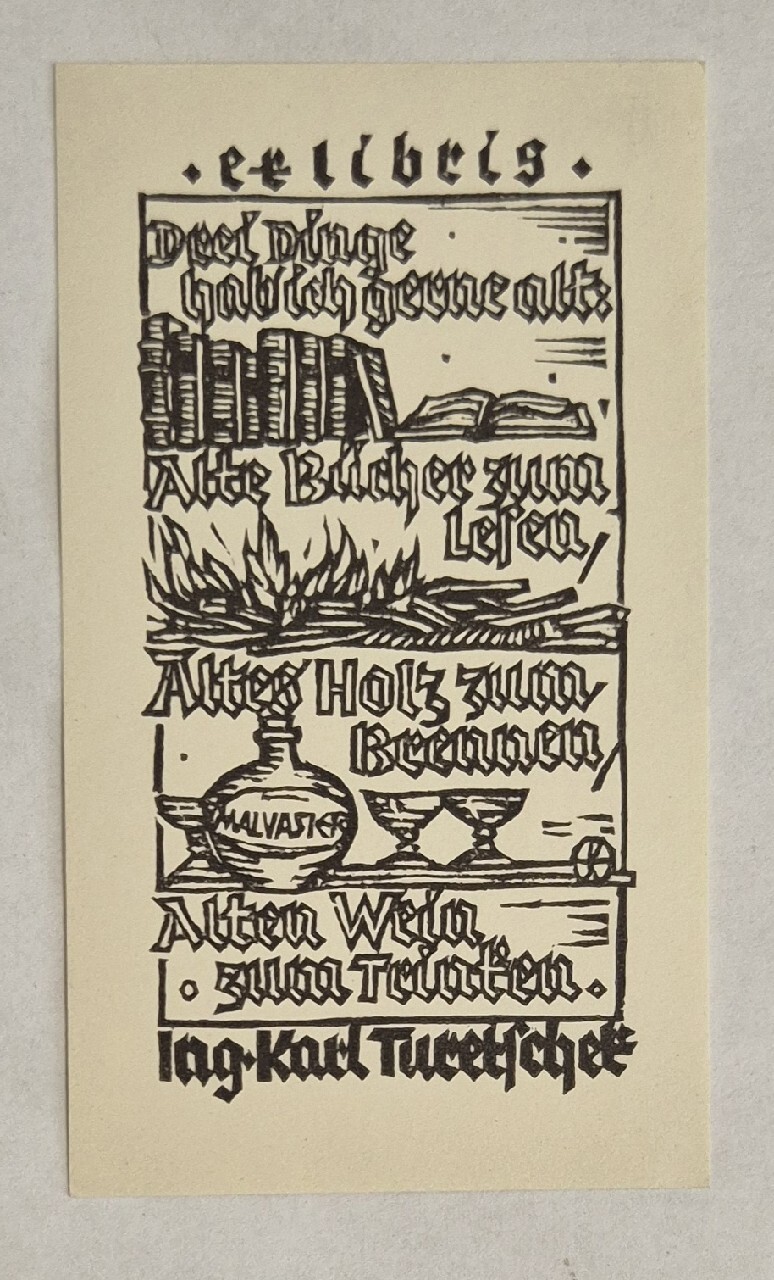 · ex libris ·
Drei Dinge
hab ich gerne alt:
Alte Bücher zum
Lesen,
Altes Holz zum
Brennen,
MALVASIER
Alten Wein
· zum Trinken ·
Ing. Karl Turetschek